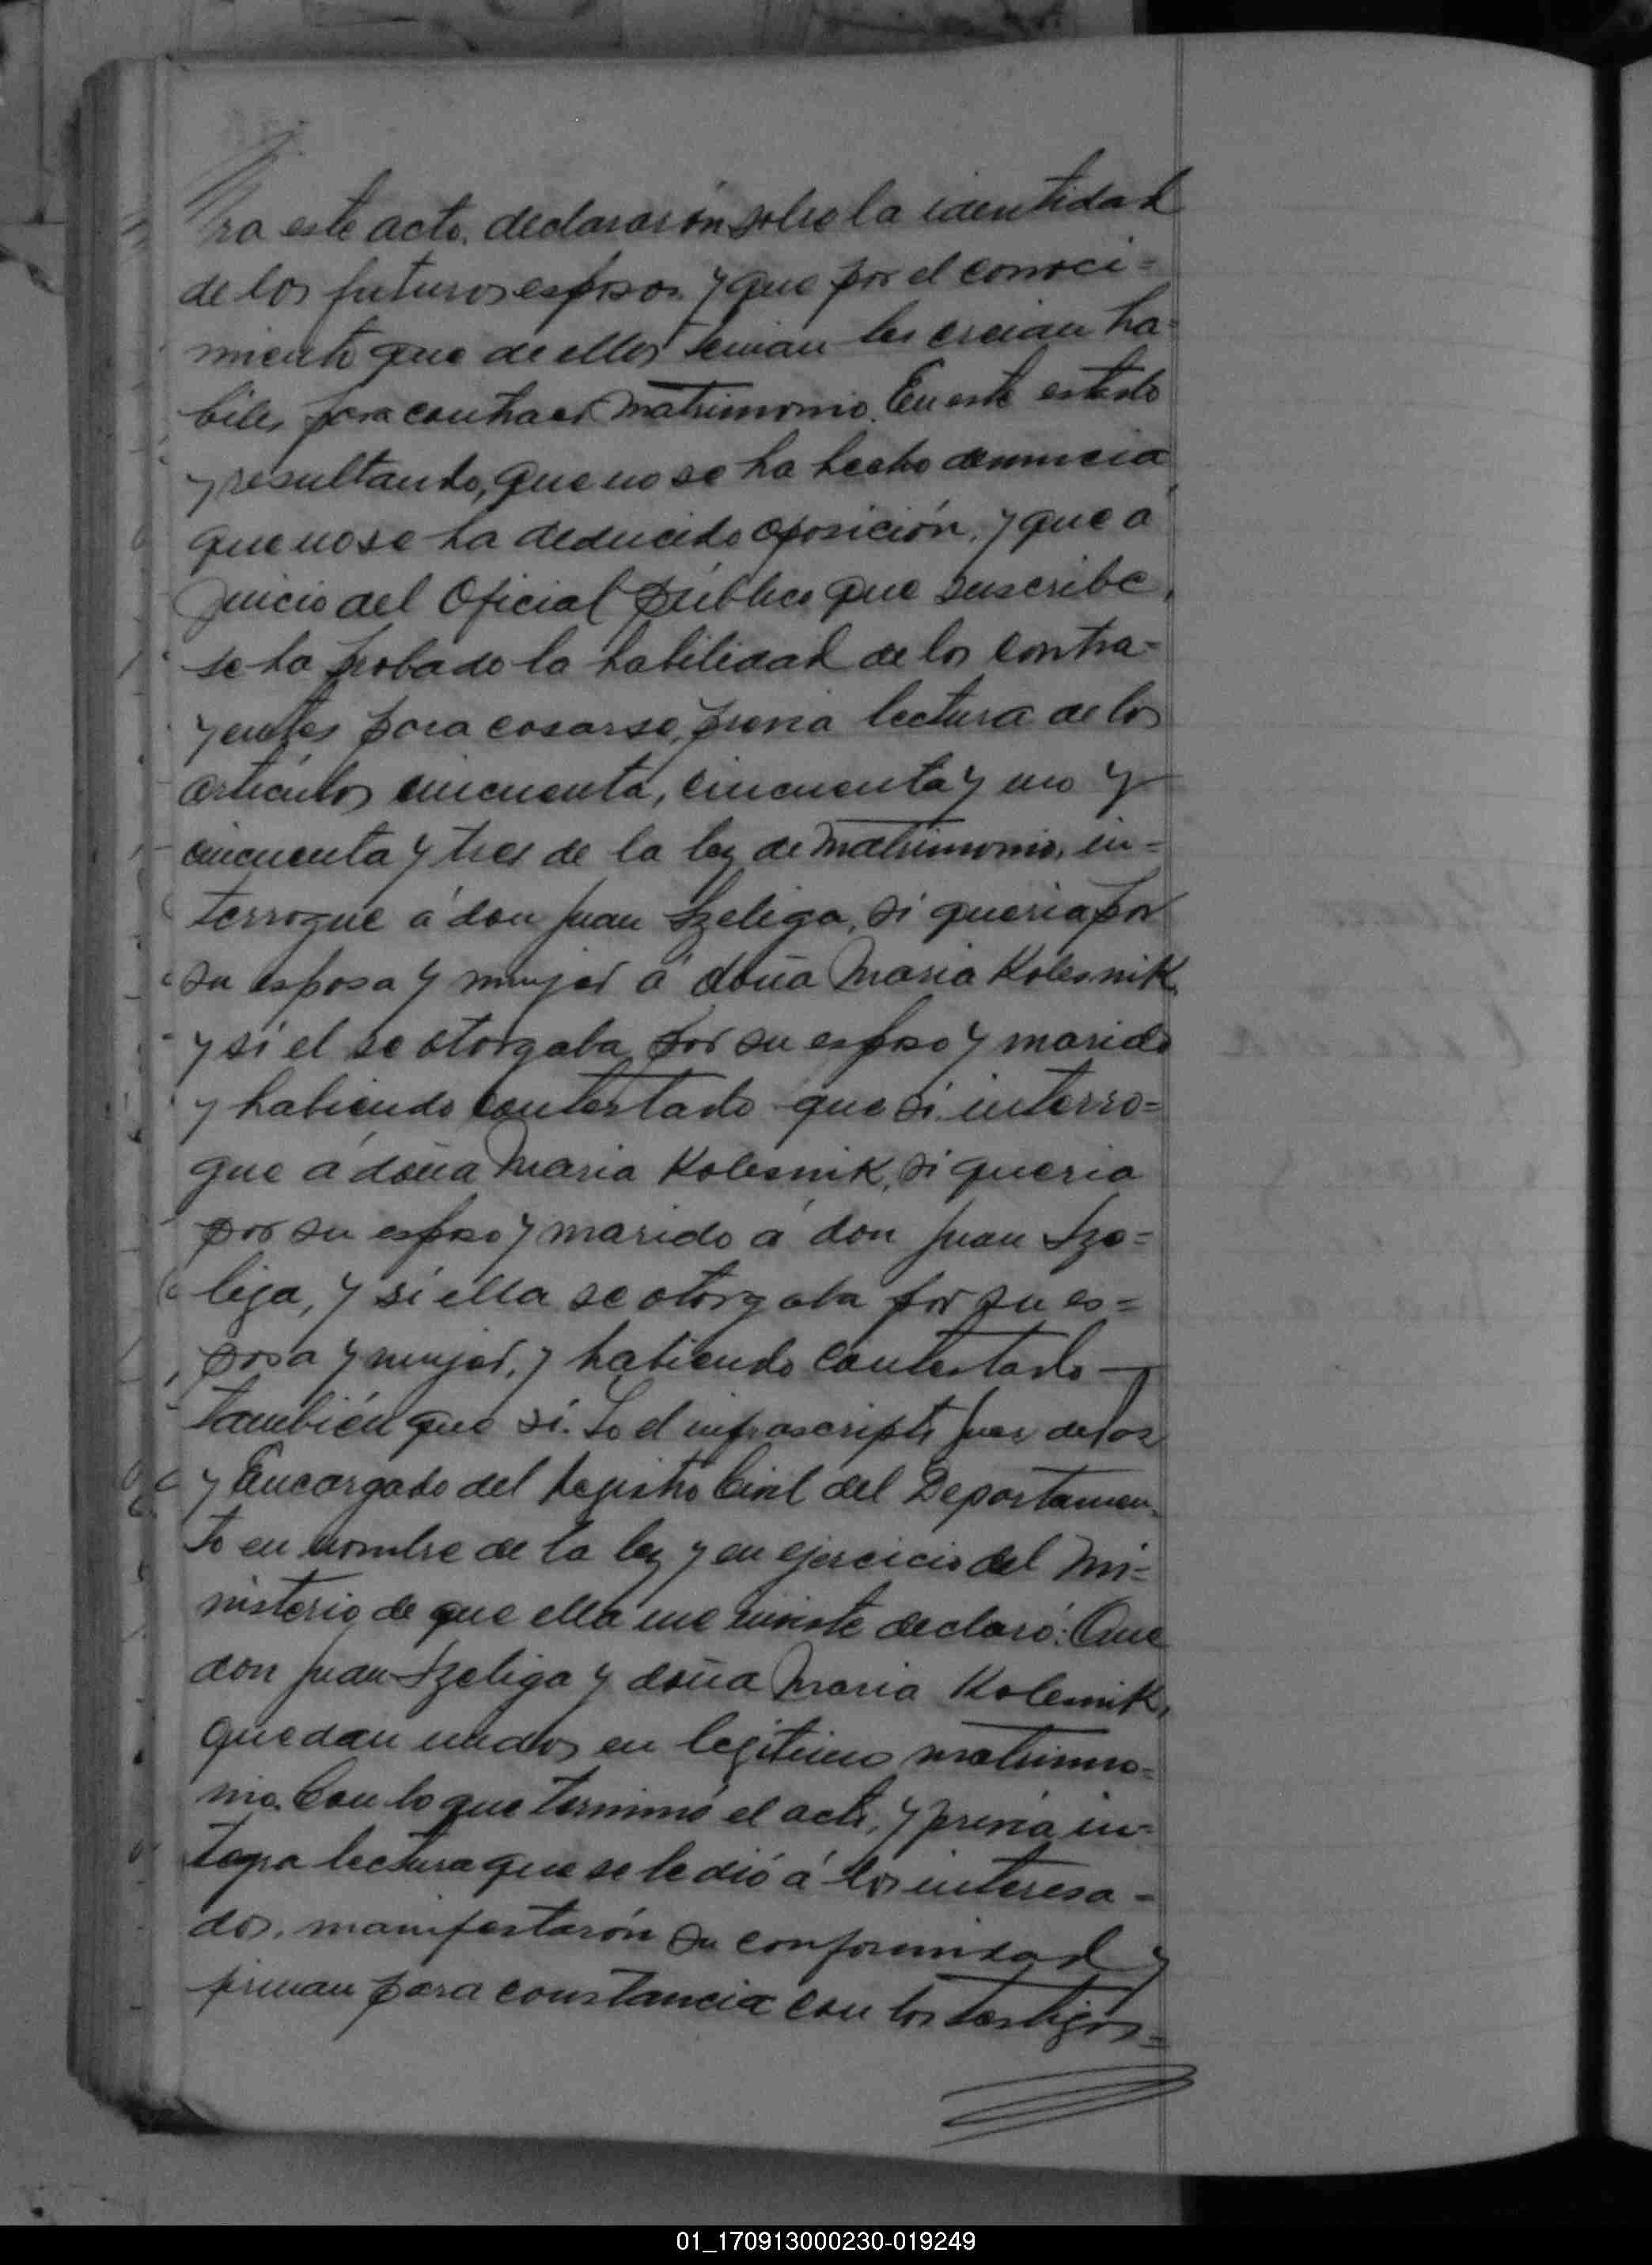 ra este acto, declararón sobre la identidad
de los futuros esposos y que por el conoci=
miento que de ellos tenian les creian ha=
biles para contraer matrimonio. En este estado
y resultando, que no se ha hecho denuncia
que no se ha deducido oposición, y que á
juicio del Oficial público que suscribe,
se ha probado la habilidad de los contra=
yentes para casarse, previa lectura de los
articulos cincuenta, cincuenta y uno y
cincuenta y tres de la ley de matrimonio, in=
terrogue á don Juan Szeliga, si queria por
su esposa y mujer á doña Maria Kolesnik,
y si el se otorgaba por su esposo y marido
y habiendo contestado que si interro=
gue á doña Maria Kolesnik, si queria
por su esposo y marido á don Juan Sze=
liga, y si ella se otorgaba por su es=
posa y mujer, y habiendo contestado —
también que sí. Yo el infrascripto Juez de Paz
y Encargado del Registro Civil del Departamen=
to en nombre de la ley y en ejercicio del Mi=
nisterio de que ella me inviste declaró: Que
don Juan Szeliga y doña Maria Kolesnik,
quedan unidos en legitimo matrimo=
nio. Con lo que terminó el acto, y previa in=
tegra lectura que se le dió á los interesa=
dos, manifestarón su conformidad y
firman para constancia con los testigos=
01_170913000230-019249